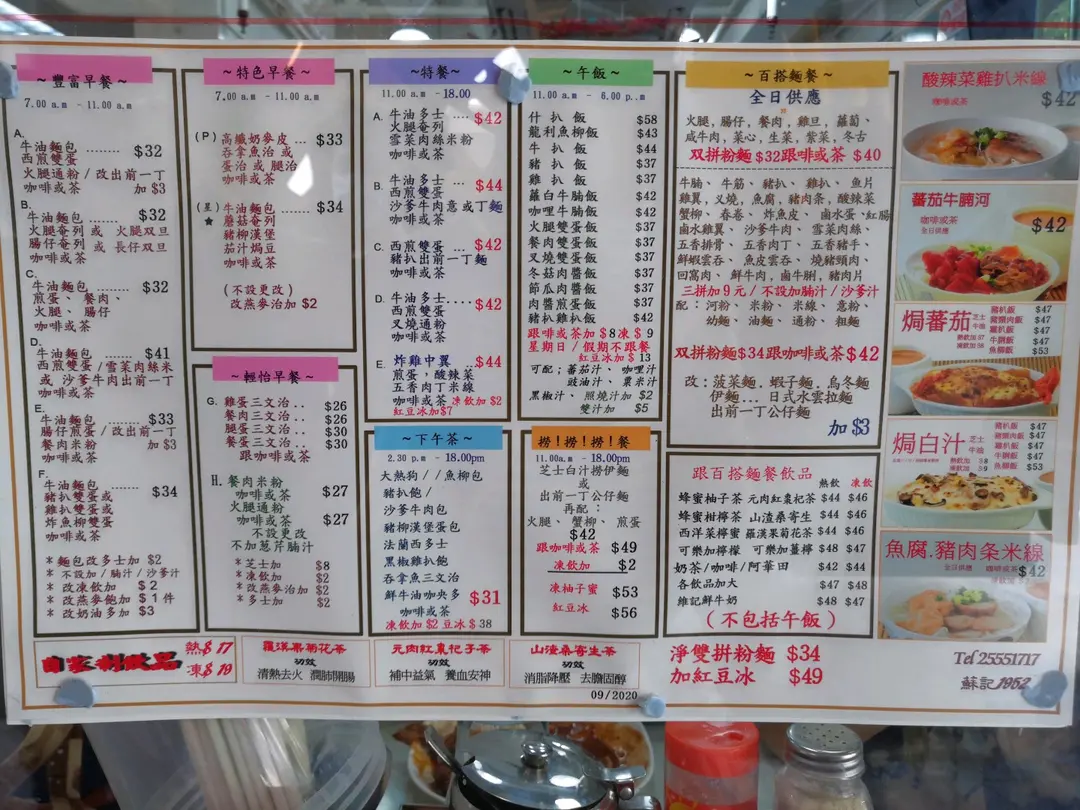 ~ 豐富早餐 ~
7.00 a.m - 11.00 a.m
A.
牛油麵包 ........ $32
西煎雙蛋
火腿通粉 / 改出前一丁
咖啡或茶 加 $3
B.
牛油麵包 ........ $32
火腿奄列 或 火腿双旦
腸仔奄列 或 長仔双旦
咖啡或茶
C.
牛油麵包 ........ $32
煎蛋、 餐肉、
火腿、 腸仔
咖啡或茶
D.
牛油麵包 ........ $41
西煎雙蛋 /雪菜肉絲米
或 沙爹牛肉出前一丁
咖啡或茶
E.
牛油麵包 ........ $33
腸仔煎蛋 / 改出前一丁
餐肉米粉 加 $3
咖啡或茶
F.
牛油麵包 ........ $34
豬扒雙蛋或
雞扒雙蛋或
炸魚柳雙蛋
咖啡或茶
* 麵包改多士加 $2
* 不設加 / 腩汁 / 沙爹汁
* 改凍飲加 $2
* 改燕麥飽加 $1 件
* 改奶油多加 $3
~ 特色早餐 ~
7.00 a.m - 11.00 a.m
(P) 高纖奶麥皮 ... $33
吞拿魚治 或
蛋治 或 腿治
咖啡或茶
(星) 牛油麵包 ....... $34
★ 蘑菇奄列
豬柳漢堡
茄汁焗豆
咖啡或茶
(不設更改)
改燕麥治加 $2
~ 輕怡早餐 ~
G. 雞蛋三文治 .. $26
餐肉三文治 .. $26
腿蛋三文治 .. $30
餐蛋三文治 .. $30
跟咖啡或茶
H. 餐肉米粉
咖啡或茶 $27
火腿通粉
咖啡或茶 $27
不設更改
不加葱芹腩汁
* 芝士加 $8
* 凍飲加 $2
* 改燕麥治加 $2
* 多士加 $2
~ 特餐 ~
11.00 a.m - 18.00
A. 牛油多士 ... $42
火腿奄列
雪菜肉絲米粉
咖啡或茶
B. 牛油多士 ... $44
西煎雙蛋
沙爹牛肉意或丁麵
咖啡或茶
C. 西煎雙蛋 ... $42
豬扒出前一丁麵
咖啡或茶
D. 牛油多士.... $42
西煎雙蛋
叉燒通粉
咖啡或茶
E. 炸雞中翼 ... $44
煎蛋、酸辣菜
五香肉丁米線
咖啡或茶 凍飲加 $2
紅豆冰加$7
~ 下午茶 ~
2.30 p.m - 18.00pm
大熱狗 / / 魚柳包
豬扒飽 /
沙爹牛肉包
豬柳漢堡蛋包
法蘭西多士
黑椒雞扒飽
吞拿魚三文治
鮮牛油咖央多 $31
咖啡或茶
凍飲加 $2 豆冰 $ 38
~ 午飯 ~
11.00 a.m - 6.00 p..m
什 扒 飯 $58
龍利魚柳飯 $43
牛 扒 飯 $44
豬 扒 飯 $42
雞 扒 飯 $42
蘿白牛腩飯 $42
咖哩牛腩飯 $42
火腿雙蛋飯 $37
餐肉雙蛋飯 $37
叉燒雙蛋飯 $37
冬菇肉醬飯 $37
節瓜肉醬飯 $37
肉醬煎蛋飯 $37
豬扒雞扒飯 $42
跟咖啡或茶加 $8 凍 $ 9
星期日 / 假期不跟餐
紅豆冰加 $ 13
可配：蕃茄汁、 咖哩汁
豉油汁 、 粟米汁
黑椒汁、 照燒汁加 $2
雙汁加 $5
撈！撈！撈！餐
11.00a.m - 18.00pm
芝士白汁撈伊麵
或
出前一丁公仔麵
再配：
火腿、 蟹柳、 煎蛋
$42
跟咖啡或茶 $49
凍飲加 $2
凍柚子蜜 $53
紅豆冰 $56
~ 百搭麵餐 ~
全日供應
火腿, 腸仔, 餐肉, 雞旦, 蘿蔔、
咸牛肉, 菜心, 生菜, 紫菜, 冬古
双拼粉麵 $32跟咖啡或茶 $40
牛腩、 牛筋、 豬扒、 雞扒、 魚片
雞翼, 叉燒, 魚腐, 豬肉条, 酸辣菜
蟹柳、 春卷、 炸魚皮、 鹵水蛋、紅腸
鹵水雞翼、 沙爹牛肉、 雪菜肉絲、
五香排骨、 五香肉丁、 五香豬手、
鮮蝦雲吞、 魚皮雲吞、 燒豬頸肉、
回窩肉、 鮮牛肉, 鹵牛脷, 豬肉片
三拼加 9 元 / 不設加腩汁 / 沙爹汁
配：河粉、 米粉、 米線、 意粉、
幼麵、 油麵、 通粉、 粗麵
双拼粉麵$34跟咖啡或茶$42
改：菠菜麵 . 蝦子麵 . 烏冬麵
伊麵 ... 日式水雲拉麵
出前一丁公仔麵
加 $3
跟百搭麵餐飲品
熱飲 凍飲
蜂蜜柚子茶 元肉紅棗杞茶 $44 $46
蜂蜜柑檸茶 山渣桑寄生 $44 $46
西洋菜檸蜜 羅漢果菊花茶 $44 $46
可樂加檸檬 可樂加薑檸 $48 $47
奶茶/咖啡/阿華田 $42 $44
各飲品加大 $47 $48
維記鮮牛奶 $48 $47
（不包括午飯）
酸辣菜雞扒米線
咖啡或茶 $42
蕃茄牛腩河
咖啡或茶
全日供應 $42
焗蕃茄 芝士牛脷
豬扒飯 $47
豬頸肉飯 $47
雞扒飯 $47
牛脷飯 $47
魚柳飯 $53
焗白汁 芝士牛脷
豬扒飯 $47
豬頸肉飯 $47
雞扒飯 $47
牛脷飯 $47
魚柳飯 $53
魚腐.豬肉条米線
全日供應 咖啡或茶 $42
自家制飲品 熱$ 17
凍$ 19
羅漢果菊花茶
功效
清熱去火 潤肺開腸
元肉紅棗杞子茶
功效
補中益氣 養血安神
山渣桑寄生茶
功效
消脂降壓 去膽固醇
09/2020
淨雙拼粉麵 $34
加紅豆冰 $49
Tel 25551717
蘇記1952